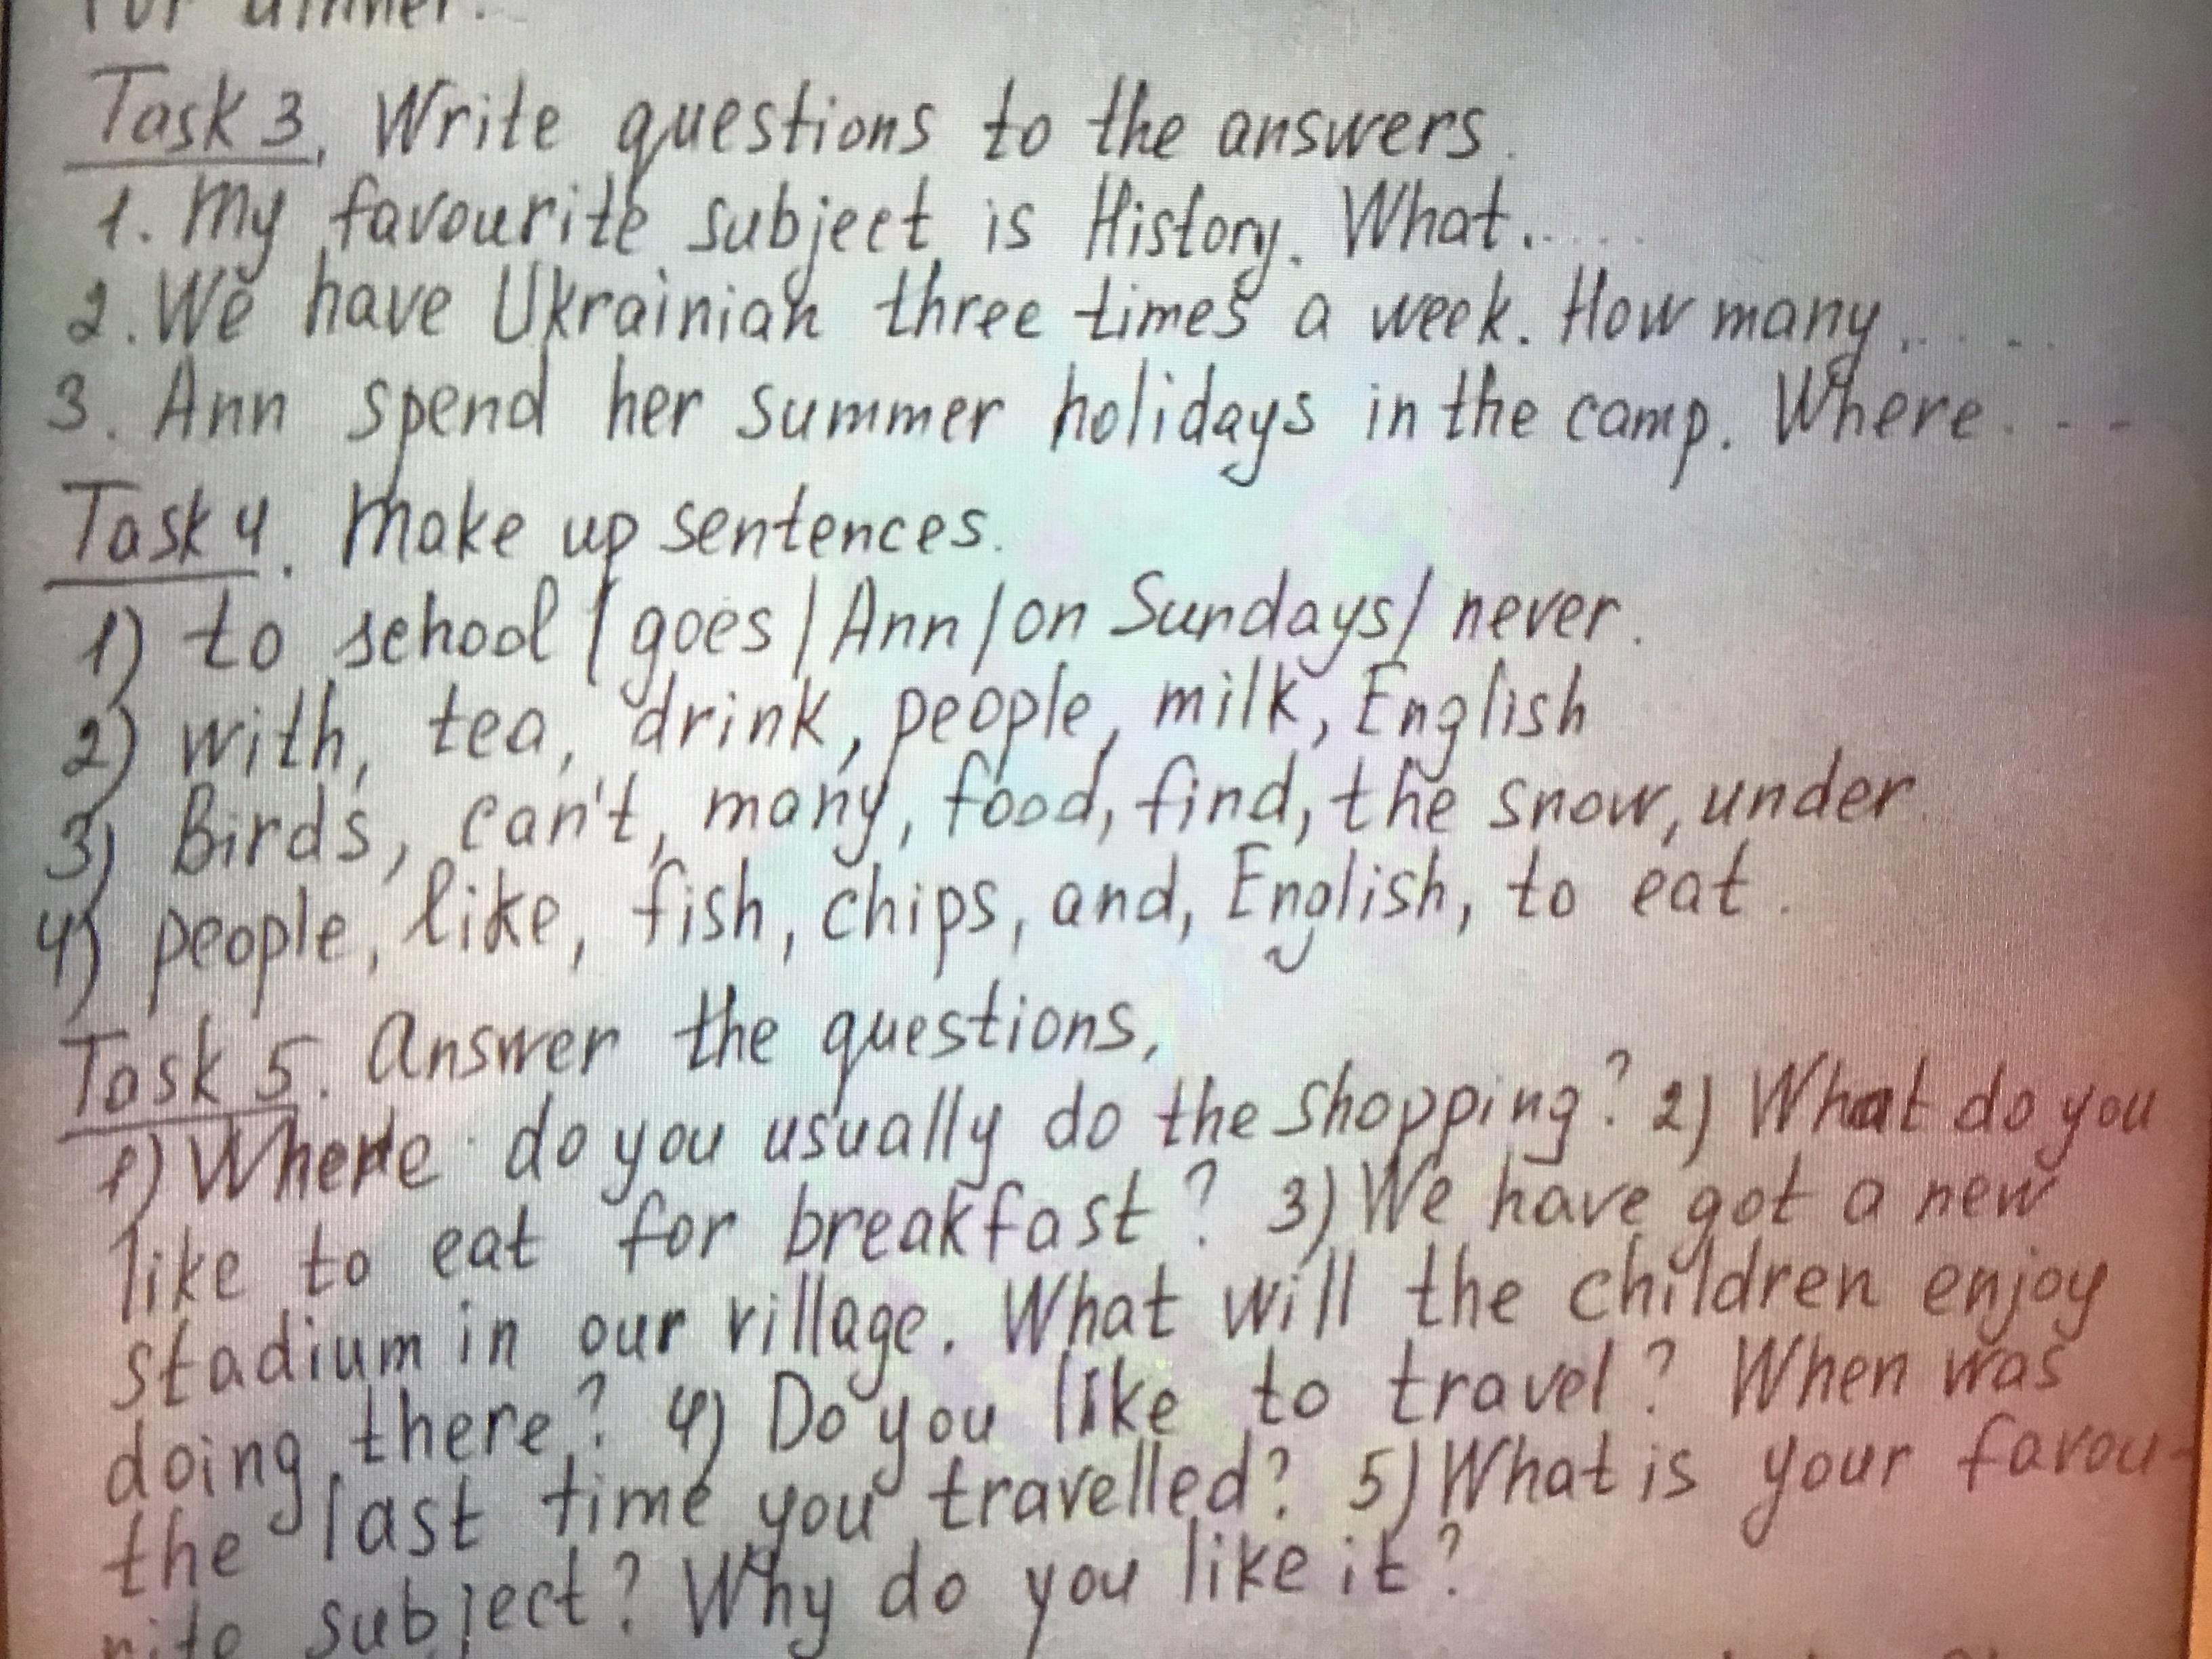 for dinner.
Task 3. Write questions to the answers.
1. My favourite subject is History. What.....
2. We have Ukrainian three times a week. How many.....
3. Ann spend her summer holidays in the camp. Where....
Task 4. Make up sentences.
1) to school / goes / Ann / on Sundays / never.
2) with, tea, drink, people, milk, English
3) Birds, can't, many, food, find, the snow, under
4) people, like, fish, chips, and, English, to eat.
Task 5. Answer the questions,
1) Where do you usually do the shopping? 2) What do you
like to eat for breakfast? 3) We have got a new
stadium in our village. What will the children enjoy
doing there? 4) Do you like to travel? When was
the last time you travelled? 5) What is your favou-
rite subject? Why do you like it?